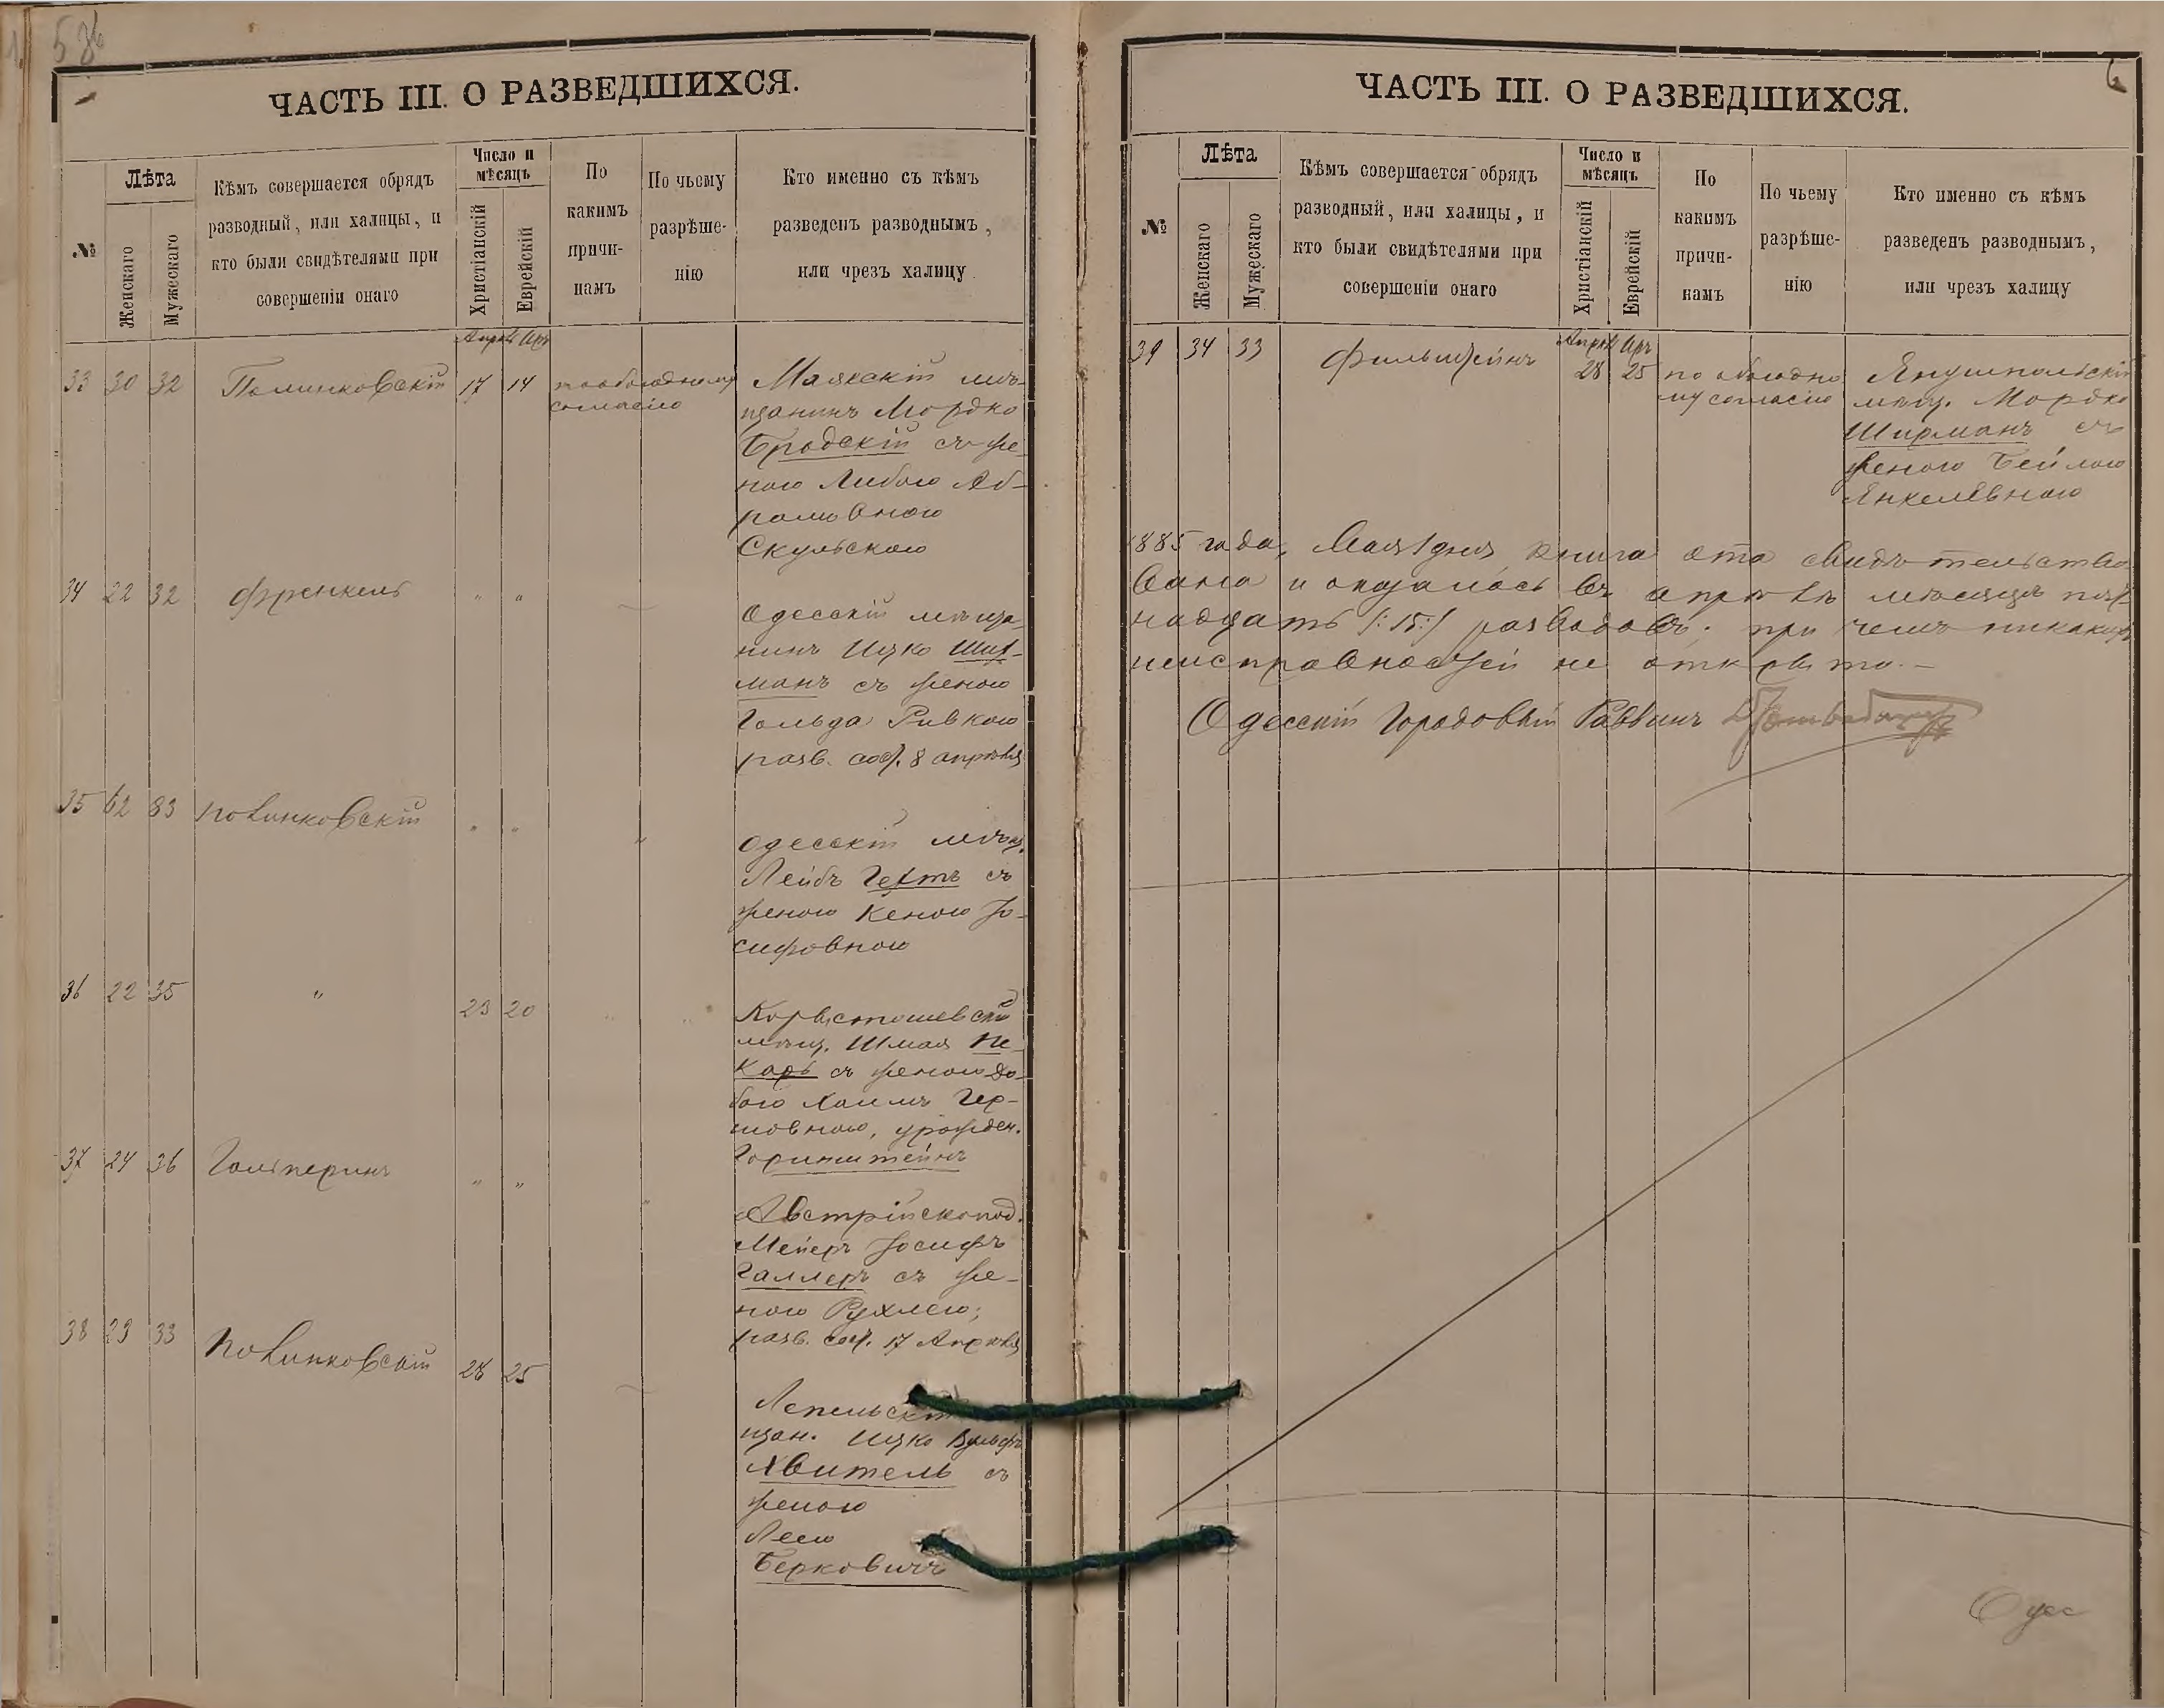 536
ЧАСТЬ III. О РАЗВЕДШИХСЯ.
№
Лѣта
Женскаго
Мужескаго
Кѣмъ совершается обрядъ
разводный, или халицы, и
кто были свидѣтелями при
совершеніи онаго
Число и
мѣсяцъ
Христіанскій
Еврейскій
По
какимъ
причи-
намъ
По чьему
разрѣше-
нію
Кто именно съ кѣмъ
разведенъ разводнымъ,
или чрезъ халицу
Апрѣль Іяръ
33 30 32 17 14 по обоюдному
согласію
Маякскій мѣ-
щанинъ Мордко
Бродскій съ же-
ною Либою Аб-
рамовною
Скульскою
34 22 32 Френкель " "
Одесскій мѣща-
нинъ Ицко
манъ съ женою
Гольда Ривкою
разв. сост. 8 апрѣля
35 62 83 Полинковскій " " "
Одесскій мѣщ.
Лейбъ Гехтъ съ
женою Кеною Іо-
сифовною
36 22 35 " 23 20 " "
мѣщ. Шмая Пе-
карь съ женою До-
бою Хаимъ Гер-
шовною, урожден.
Горинштейнъ
37 24 36 Гальперинъ " " "
Австрійскопод.
Мейеръ Іосифъ
Галлеръ съ же-
ною Рухлею;
разв. сост. 17 Апрѣля
38 23 33 Полинковскій 28 25
Лепельскій
щан. Ицко Вульфъ
Хвитель съ
женою
Леею
Берковичъ
6
ЧАСТЬ III. О РАЗВЕДШИХСЯ.
№
Лѣта
Женскаго
Мужескаго
Кѣмъ совершается обрядъ
разводный, или халицы, и
кто были свидѣтелями при
совершеніи онаго
Число и
мѣсяцъ
Христіанскій
Еврейскій
По
какимъ
причи-
намъ
По чьему
разрѣше-
нію
Кто именно съ кѣмъ
разведенъ разводнымъ,
или чрезъ халицу
Апрѣль Іяръ
39 34 33 Фильштейнъ 28 25 по обоюдно
му согласію
Янушпольскій
мѣщ. Мордко
Ширманъ съ
женою Бейлою
Янкелевною
1885 года, Мая 1 дня, книга эта свидѣтельство-
вана и оказалось въ апрѣлѣ мѣсяцѣ пят-
надцать /:15:/ разводовъ; при чемъ никакихъ
неисправностей не открыто. –
Одесскій Городовый Раввинъ
Одес